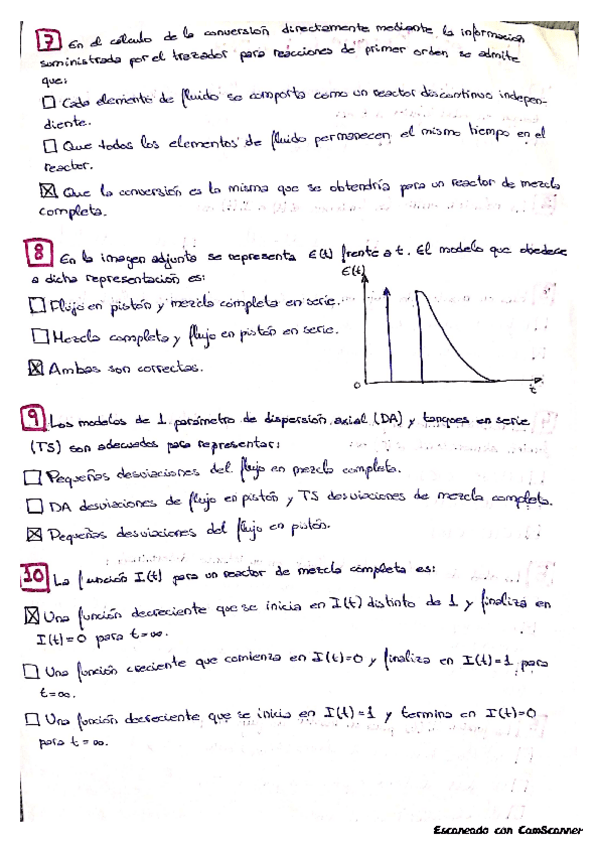 7 En el cálculo de la conversión directamente mediante la información
suministrada por el trazador para reacciones de primer orden se admite
que:
Cada elemento de fluido se comporta como un reactor discontinuo indepen-
diente.
Que todos los elementos de fluido permanecen el mismo tiempo en el
reactor.
Que la conversión es la misma que se obtendría para un reactor de mezcla
completa.
8 En la imagen adjunta se representa E(t) frente a t. El modelo que obedece
a dicha representación es:
E(t)
Flujo en pistón y mezcla completa en serie.
Mezcla completa y flujo en pistón en serie.
Ambas son correctas.
0
t
9 Los modelos de 1 parámetro de dispersión axial (DA) y tanques en serie
(TS) son adecuados para representar:
Pequeñas desviaciones del flujo en mezcla completa.
DA desviaciones de flujo en pistón y TS desviaciones de mezcla completa.
Pequeñas desviaciones del flujo en pistón.
10 La función I(t) para un reactor de mezcla completa es:
Una función decreciente que se inicia en I(t) distinto de 1 y finaliza en
I(t)=0 para t=∞.
Una función creciente que comienza en I(t)=0 y finaliza en I(t)=1 para
t=∞.
Una función decreciente que se inicia en I(t)=1 y termina en I(t)=0
para t=∞.
Escaneado con CamScanner